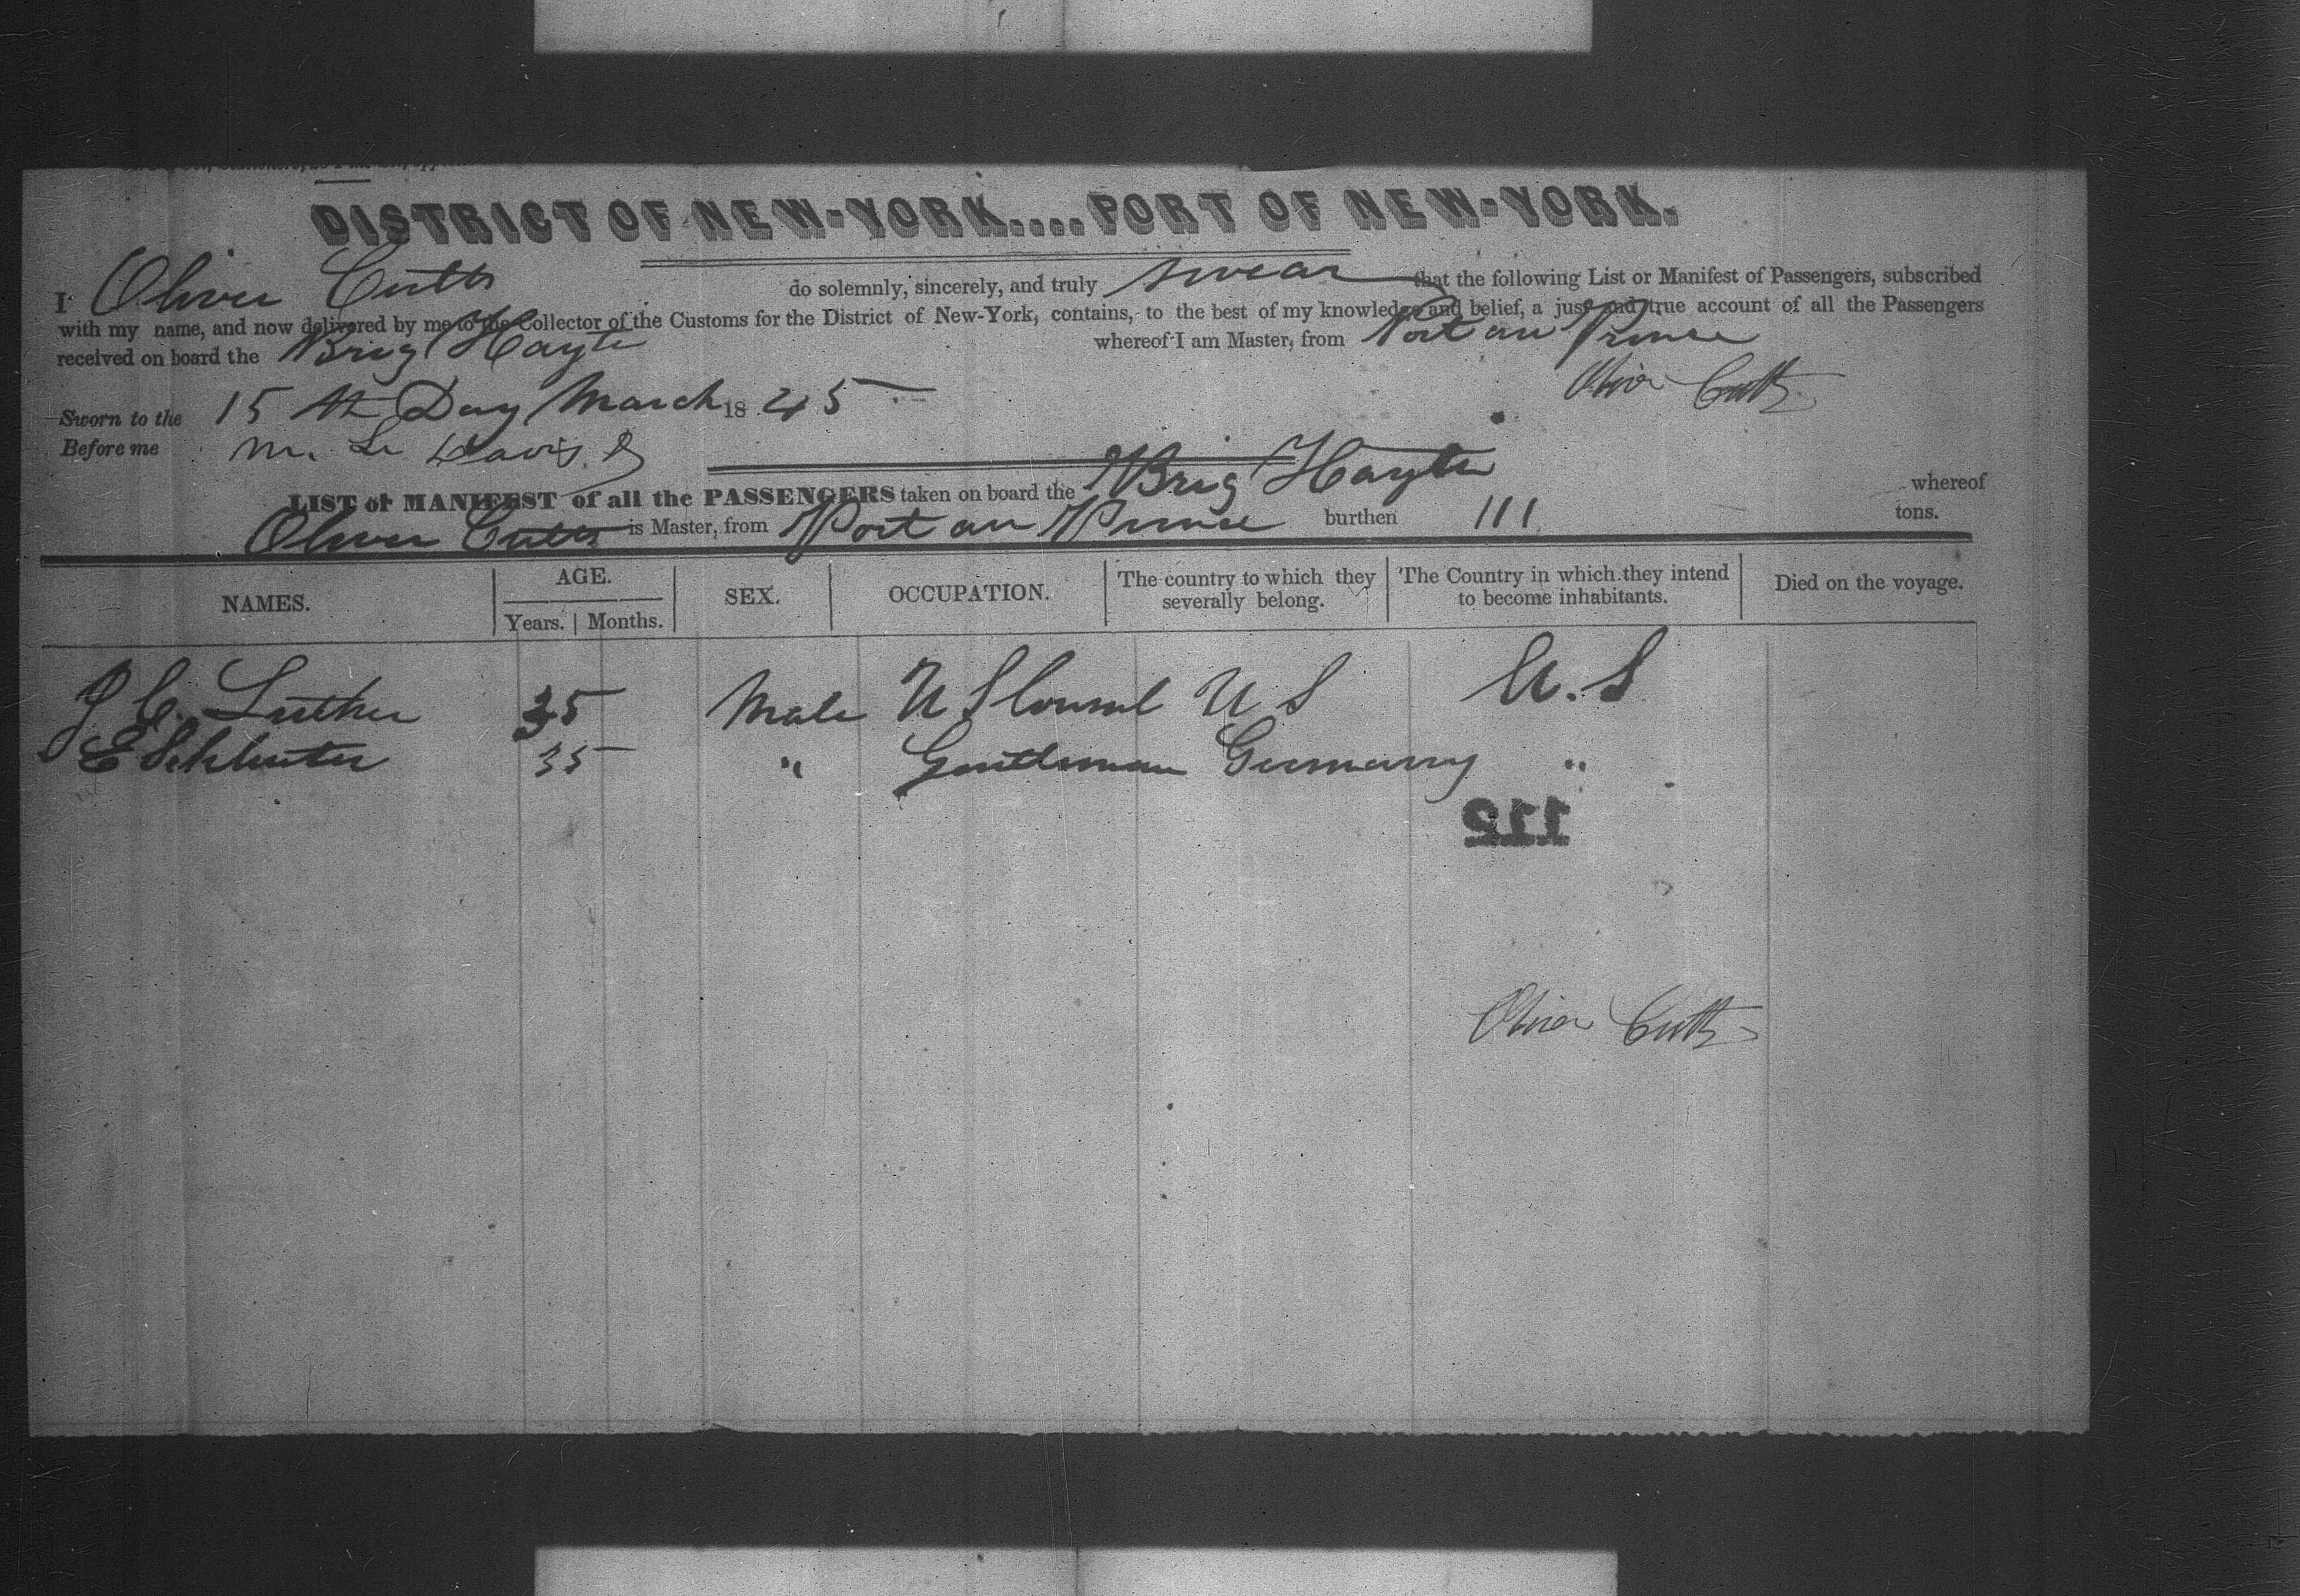 DISTRICT OF NEW-YORK....PORT OF NEW-YORK.
I Oliver Cutts do solemnly, sincerely, and truly swear that the following List or Manifest of Passengers, subscribed
with my name, and now delivered by me to the Collector of the Customs for the District of New-York, contains, to the best of my knowledge and belief, a just and true account of all the Passengers
received on board the Brig Hayti whereof I am Master, from Port au Prince
Oliver Cutts
Sworn to the 15th Day March 1845
Before me M. L. Davis
LIST or MANIFEST of all the PASSENGERS taken on board the Brig Hayti whereof
Oliver Cutts is Master, from Port au Prince burthen 111 tons.
NAMES. AGE. Years. Months. SEX. OCCUPATION. The country to which they severally belong. The Country in which they intend to become inhabitants. Died on the voyage.
J C. Luther 35 Male U S Consul U S U.S
E Schluter 35 " Gentleman Germany "
112
Oliver Cutts